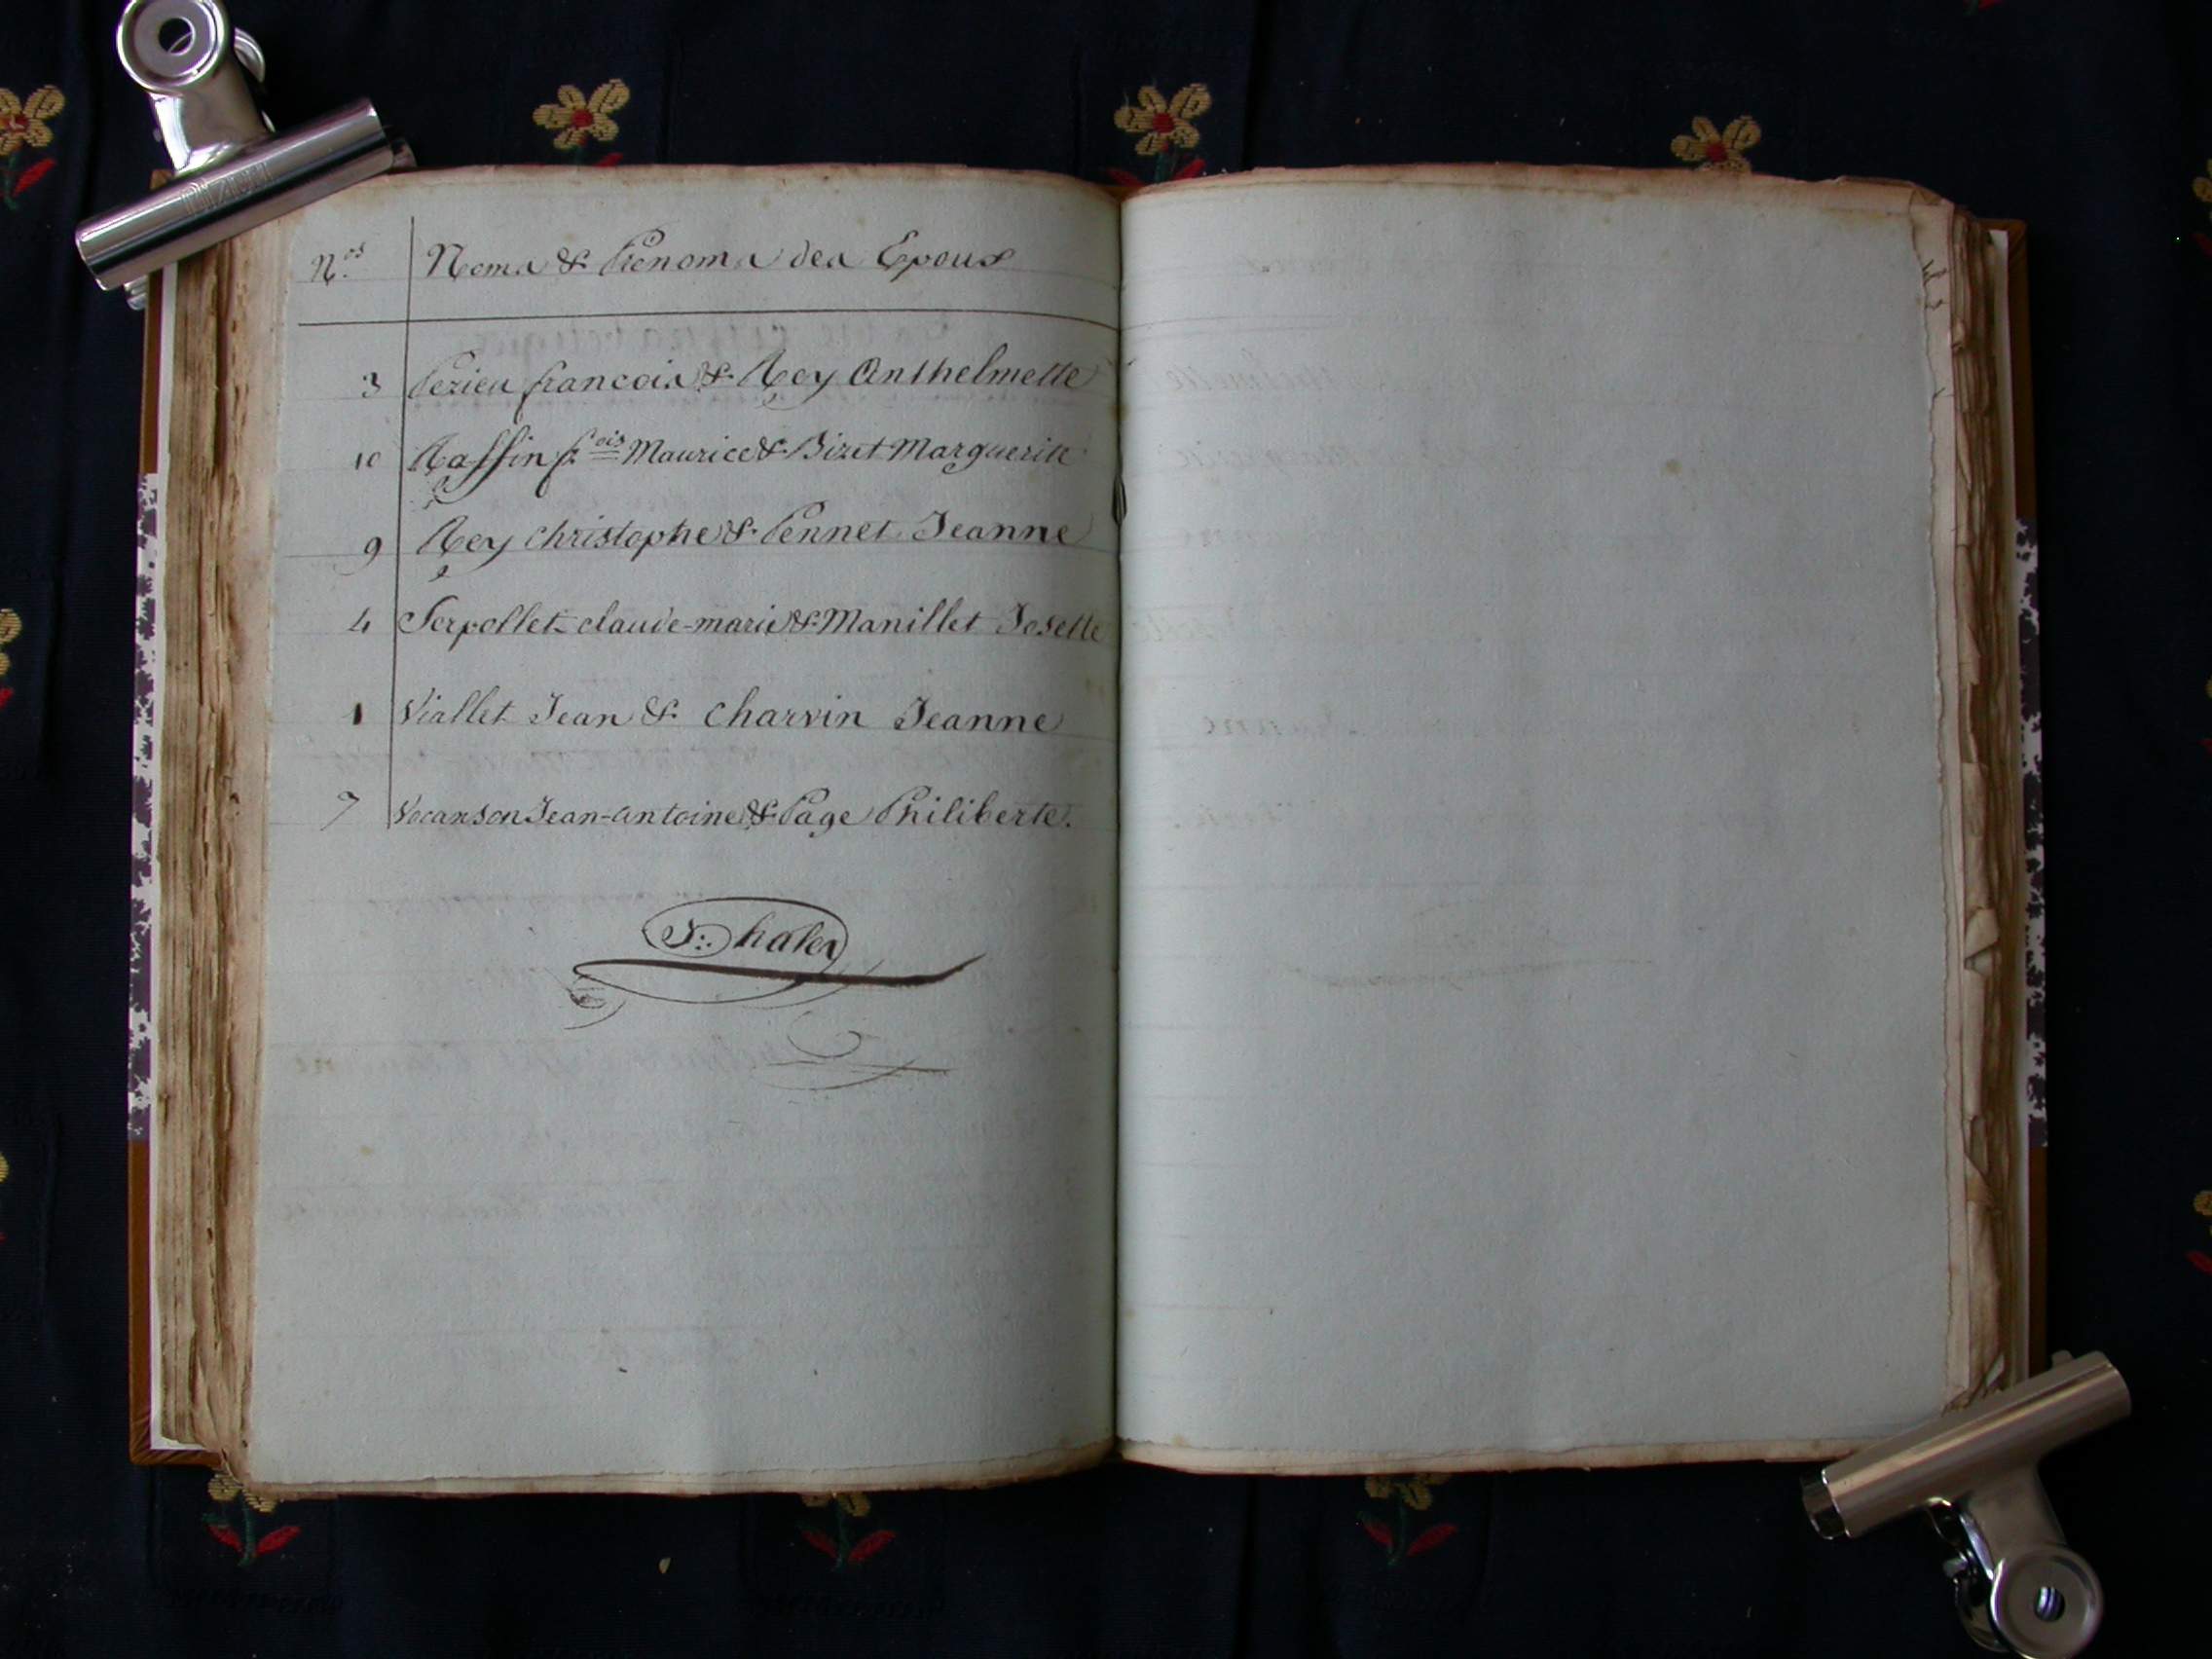 N.os Noms & Prénoms des Epoux
3 Perieu francois & Rey Anthelmette
10 Raffin f.ois Maurice & Bizet Marguerite
9 Rey christophe & Pennet Jeanne
4 Serpollet claude-marie & Manillet Josette
1 Viallet Jean & Charvin Jeanne
7 Vocanson Jean-antoine & Page Philiberte.